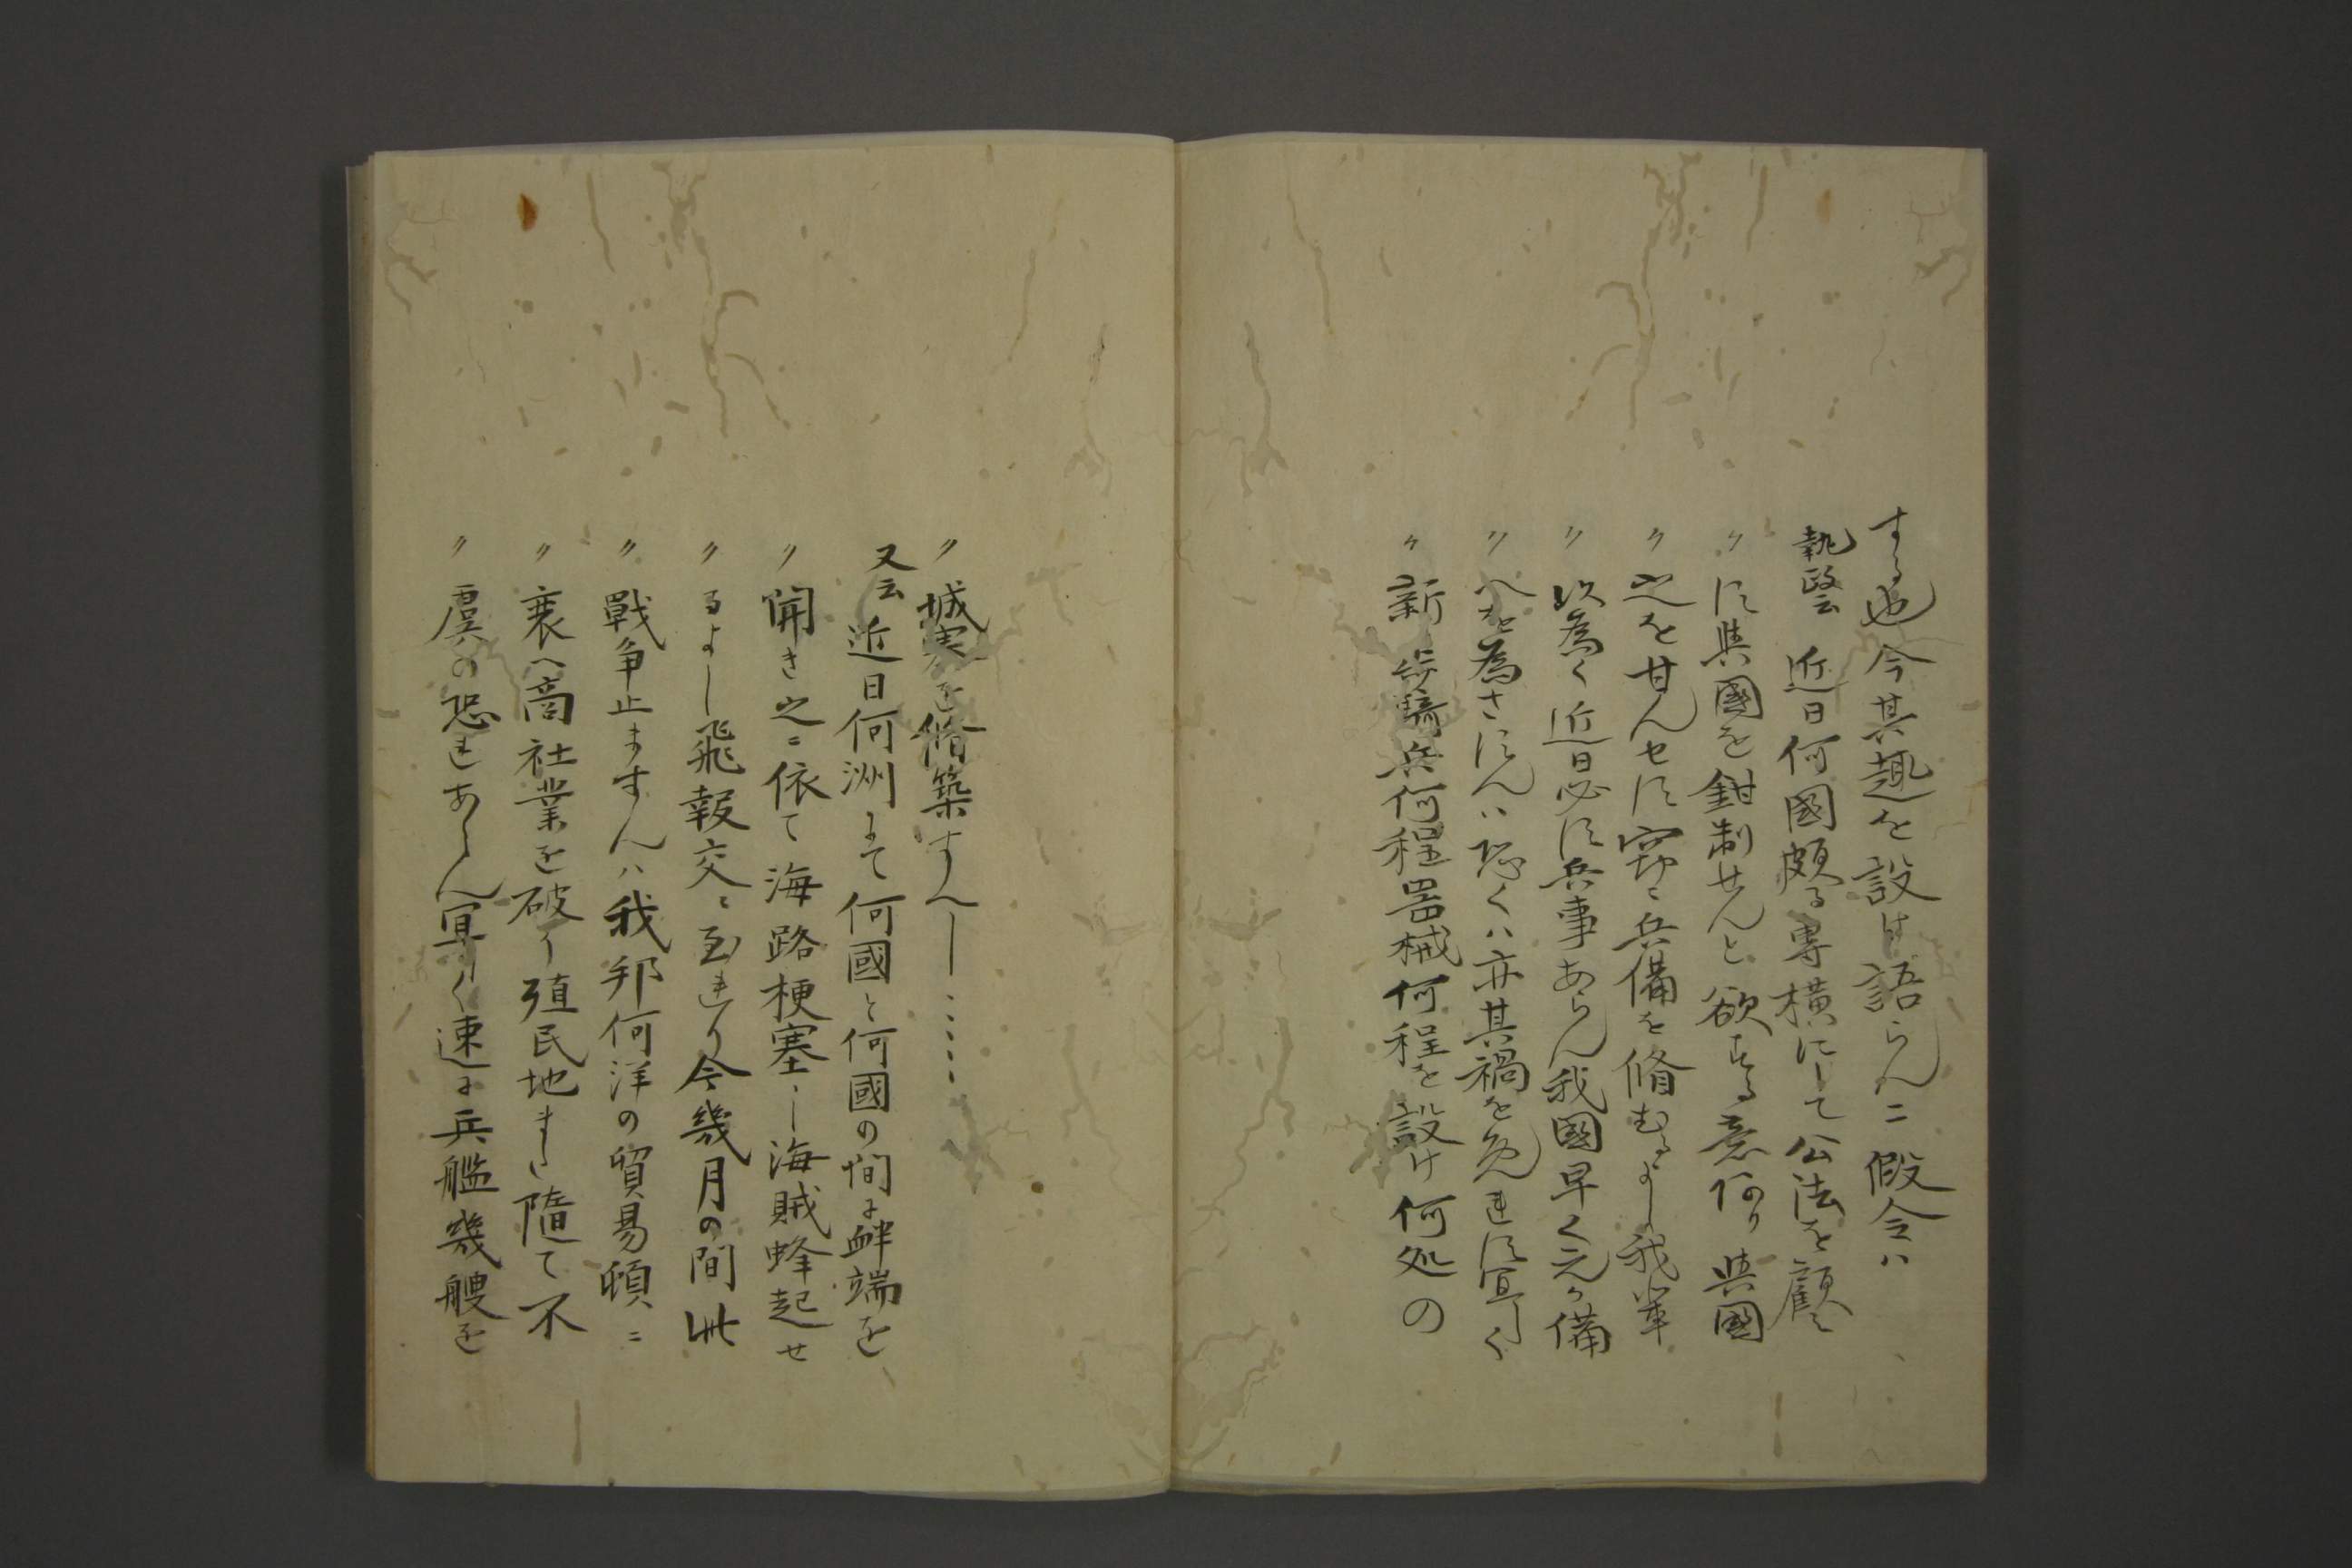 する也今其趣を設け語らんニ假令ハ
執政云近日何國頗る専横にして公法を顧
〃す與國を鉗制せんと欲する意何り與國
〃之を甘んセす窃ニ兵備を脩むるよし我輩
〃以為く近日必す兵事あらん我國早く之か備
〃へを為さすんハ恐くハ亦其禍を免れす宜く
〃新ニ歩騎兵何程器械何程を設け何処の
〃城寨を脩築すへし……
又云近日何洲にて何國と何國の間に衅端を
〃開き之ニ依て海路梗塞し海賊蜂起せ
〃るよし飛報交ミ至れり今幾月の間此
〃戰争止ますんハ我邦何洋の貿易頓ニ
〃衰へ商社業を破り殖民地また隨て不
〃虞の恐れあらん冝く速に兵艦幾艘を